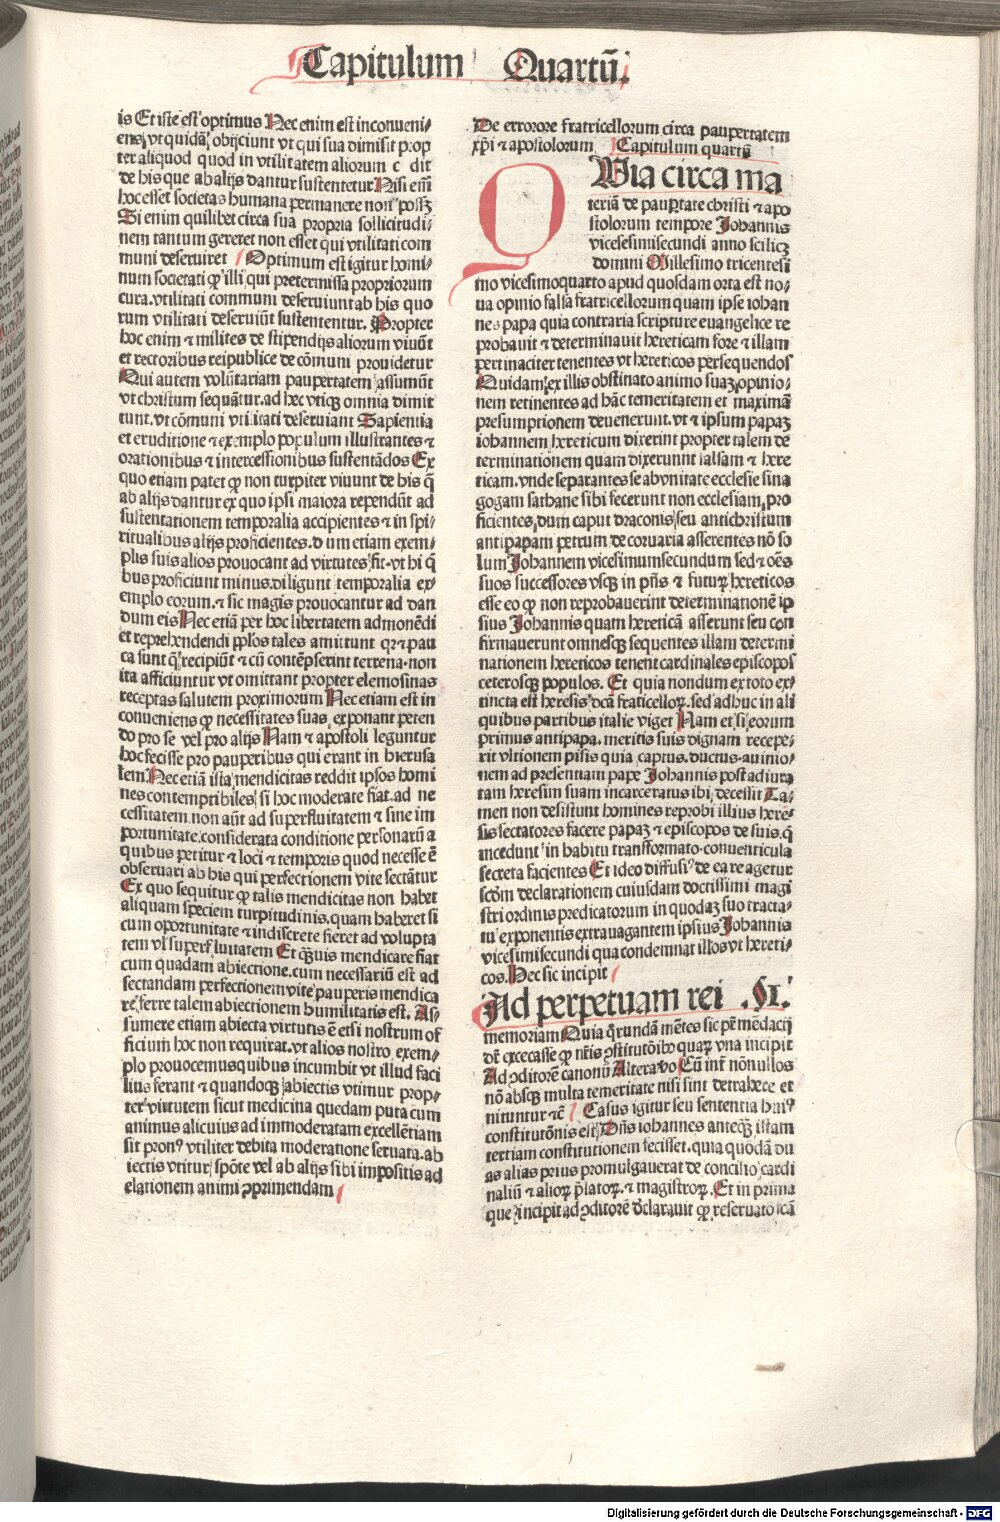 Capitulum Quartū.
is Et iste est optimus Nec enim est inconueni⸗
ens, vt quidā obijciunt vt qui sua dimisit prop
ter aliquod quod in vtilitatem aliorum c dit
de his que ab alijs dantur sustentetur Nisi em̄
hoc esset societas humana permanere non possꝫ
Si enim quilibet circa sua propria sollicitudi⸗
nem tantum gereret non esset qui vtilitati com
muni deseruiret Optimum est igitur homi⸗
num societati ꝙ illi qui pretermissa propriorum
cura. vtilitati communi deseruiunt ab his quo
rum vtilitati deseruiūt sustententur. Propter
hoc enim ⁊ milites de stipendijs aliorum viuūt
et rectoribus reipublice de cōmuni prouidetur
Qui autem volūtariam paupertatem assumūt
vt christum sequātur. ad hec vtiqꝫ omnia dimit
tunt. vt cōmuni vtilitati deseruiant Sapientia
et eruditione ⁊ exemplo populum illustrantes ⁊
orationibus ⁊ intercessionibus sustentādos Ex
quo etiam patet ꝙ non turpiter viuunt de his q̄
ab alijs dantur ex quo ipsi maiora rependūt ad
sustentationem temporalia accipientes ⁊ in spi⸗
ritualibus alijs proficientes. d um etiam exem⸗
plis suis alios prouocant ad virtutes fit. vt hi q̄
bus proficiunt minus diligunt temporalia ex
emplo eorum. ⁊ sic magis prouocantur ad dan
dum eis Nec etiā per hoc libertatem admonēdi
et reprehendendi pplos tales amittunt qr ⁊ pau
ca sunt q̄ recipiūt ⁊ cū contēpserint terrena. non
ita afficiuntur vt omittant propter elemosinas
receptas salutem proximorum Nec etiam est in
conueniens ꝙ necessitates suas exponant peten
do pro se vel pro alijs Nam ⁊ apostoli leguntur
hoc fecisse pro pauperibus qui erant in hierusa
lem. Nec etiā ista mendicitas reddit ipsos homi
nes contemptibiles si hoc moderate fiat. ad ne
cessitatem. non aūt ad superfluitatem ⁊ sine im
portunitate. considerata conditione personarū a
quibus petitur ⁊ loci ⁊ temporis quod necesse ē
obseruari ab his qui perfectionem vite sectātur
Ex quo sequitur ꝙ talis mendicitas non habet
aliquam speciem turpitudinis. quam haberet si
cum oportunitate ⁊ indiscrete fieret ad volupta
tem vl superfluitatem Et q̄uis mendicare fiat
cum quadam abiectione. cum necessariū est ad
sectandam perfectionem vite pauperis mendica
re, ferre talem abiectionem humilitatis est. As⸗
sumere etiam abiecta virtutis ē etsi nostrum of
ficium hoc non requirat. vt alios nostro exem⸗
plo prouocemus quibus incumbit vt illud faci
lius ferant ⁊ quandoqꝫ abiectis vtimur prop⸗
ter virtutem sicut medicina quedam puta cum
animus alicuius ad immoderatam excellētiam
sit pronꝰ vtiliter debita moderatione seruata. ab
iectis vtitur spōte vel ab alijs sibi impositis ad
elationem animi ꝯprimendam
De errorore fratricellorum circa paupertatem
xp̄i ⁊ apostolorum Capitulum quartū
QVia circa ma
teriā de paupertate christi ⁊ apo
stolorum tempore Johannis
vicesesimisecundi anno scilicꝫ
domini Millesimo tricentesi
mo vicesimoquarto apud quosdam orta est no⸗
ua opinio falsa fratricellorum quam ipse iohan
nes papa quia contraria scripture euangelice re
probauit ⁊ determinauit hereticam fore ⁊ illam
pertinaciter tenentes vt hereticos persequendos
Quidam ex illis obstinato animo suaꝫ opinio⸗
nem retinentes ad hāc temeritatem et maximā
presumptionem deuenerunt. vt ⁊ ipsum papaꝫ
iohannem hereticum dixerint propter talem de
terminationem quam dixerunnt falsam ⁊ here
ticam. vnde separantes se ab vnitate ecclesie sina
gogam sathane sibi fecerunt non ecclesiam, pro
ficientes, dum caput draconis seu antichristum
antipapam petrum de coruaria asserentes nō so
lum Johannem vicesimumsecundum sed ⁊ oēs
suos successores vsqꝫ in pn̄s ⁊ futurꝫ hereticos
esse eo ꝙ non reprobauerint determinationē ip
sius Johannis quam hereticā asserunt seu con
firmauerunt omnesqꝫ sequentes illam determi
nationem hereticos tenent cardinales episcopos
ceterosqꝫ populos. Et quia nondum ex toto ex⸗
tincta est heresis dcā fraticelloꝝ. sed adhuc in ali
quibus partibus italie viget Nam et si eorum
primus antipapa. meritis suis dignam recepe⸗
rit vltionem pisis quia captus. ductus. auinio⸗
nem ad presentiam pape Johannis post adiura
tam heresim suam incarceratus ibi decessit Ta⸗
men non desistunt homines reprobi illius here⸗
sis sectatores facere papaꝫ ⁊ episcopos de suis. q̄
incedunt in habitu transformato. conuenticula
secreta facientes Et ideo diffusiꝰ de ea re agetur
scdm declarationem cuiusdam doctissimi magi
stri ordinis predicatorum in quodaꝫ suo tracta⸗
tu exponentis extrauagantem ipsius Johannis
vicesimisecundi qua condemnat illos vt hereti⸗
cos. Nec sic incipit
Ad perpetuam rei .§I.
memoriam Quia q̄rundā mētes sic pr̄ mēdacij
dr̄ excecasse ꝙ nr̄is ꝯstitutōibꝰ quaꝝ vna incipit
Ad ꝯditorē canonū Altera vo Cū int̄ nōnullos
nō absqꝫ multa temeritate nisi sint detrahere et
nituntur ⁊c̄ Casus igitur seu sententia huiꝰ
constitutōnis est Dn̄s iohannes anteqꝫ istam
tertiam constitutionem fecisset. quia quodā du
as alias prius promulgauerat de concilio cardi
naliū ⁊ alioꝝ p̄latoꝝ. ⁊ magistroꝝ. Et in prima
que incipit ad ꝯditorē dc̄larauit ꝙ reseruato rcā
Digitalisierung gefördert durch die Deutsche Forschungsgemeinschaft - DFG